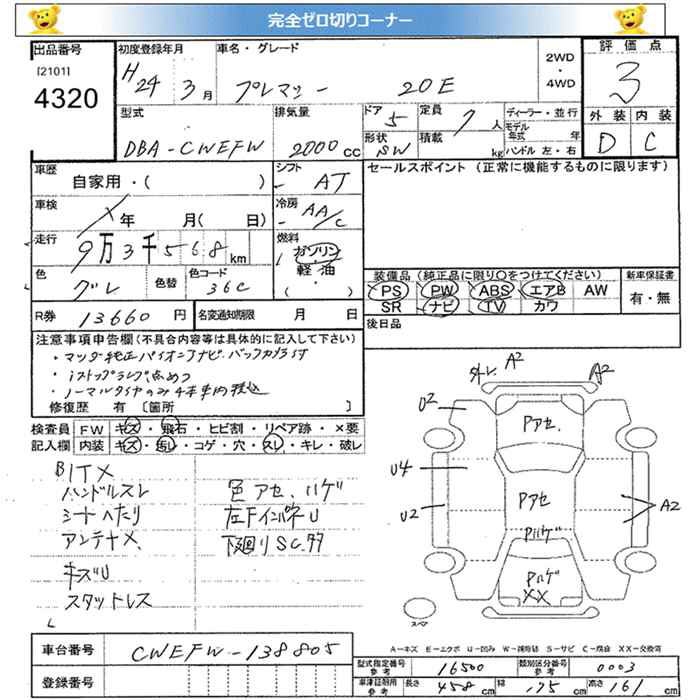 完全ゼロ切りコーナー
出品番号
[2101]
4320
初度登録年月
H24 3月
車名・グレード
プレマシー 20E
2WD
・
4WD
評価点
3
外装 内装
D C
型式
DBA-CWEFW
排気量
2000cc
ドア 5
形状 SW
定員 7人
積載 kg
ディーラー・並行
モデル年式 年
ハンドル 左・右
車歴
自家用・( )
シフト
- AT
セールスポイント (正常に機能するものに限ります)
車検
X年 月( 日)
冷房
- AA/C
走行
9万3千568km
燃料
ガソリン
軽・油
・( )
色
グレ
色替
色コード
36C
装備品 (純正品に限り○をつけてください)
PS PW ABS エアB AW
SR ナビ TV カワ
新車保証書
有・無
R券 13660円
名変通知期限 月 日
後日品
注意事項申告欄(不具合内容等は具体的に記入して下さい)
・マツダ純正パイオニアナビ.バックカメラ付
・iストップランプ点めつ
・ノーマルタイヤのみ4本車内積込
修復歴 有 [箇所 ]
検査員記入欄
FW キズ・飛石・ヒビ割・リペア跡・×要
内装 キズ・汚レ・コゲ・穴・スレ・キレ・破レ
BITX
ハンドルスレ
シートヘたり
アンテナX
キズU
スタットレス
色アセ、ハゲ
左FインパネU
下廻りSC.サ
外レ A2
A2
U2
U4
U2
A2
Pアセ.
Pアセ
Pハゲ
Pハゲ
XX
スペア
A-キズ E-エクボ U-凹み W-補修跡 S-サビ C-腐食 XX-交換済
車台番号
CWEFW-138805
登録番号
型式指定番号 参考 16500
類別区分番号 参考 0003
車庫証明用 参考 長さ 458cm 幅 175cm 高さ 161cm